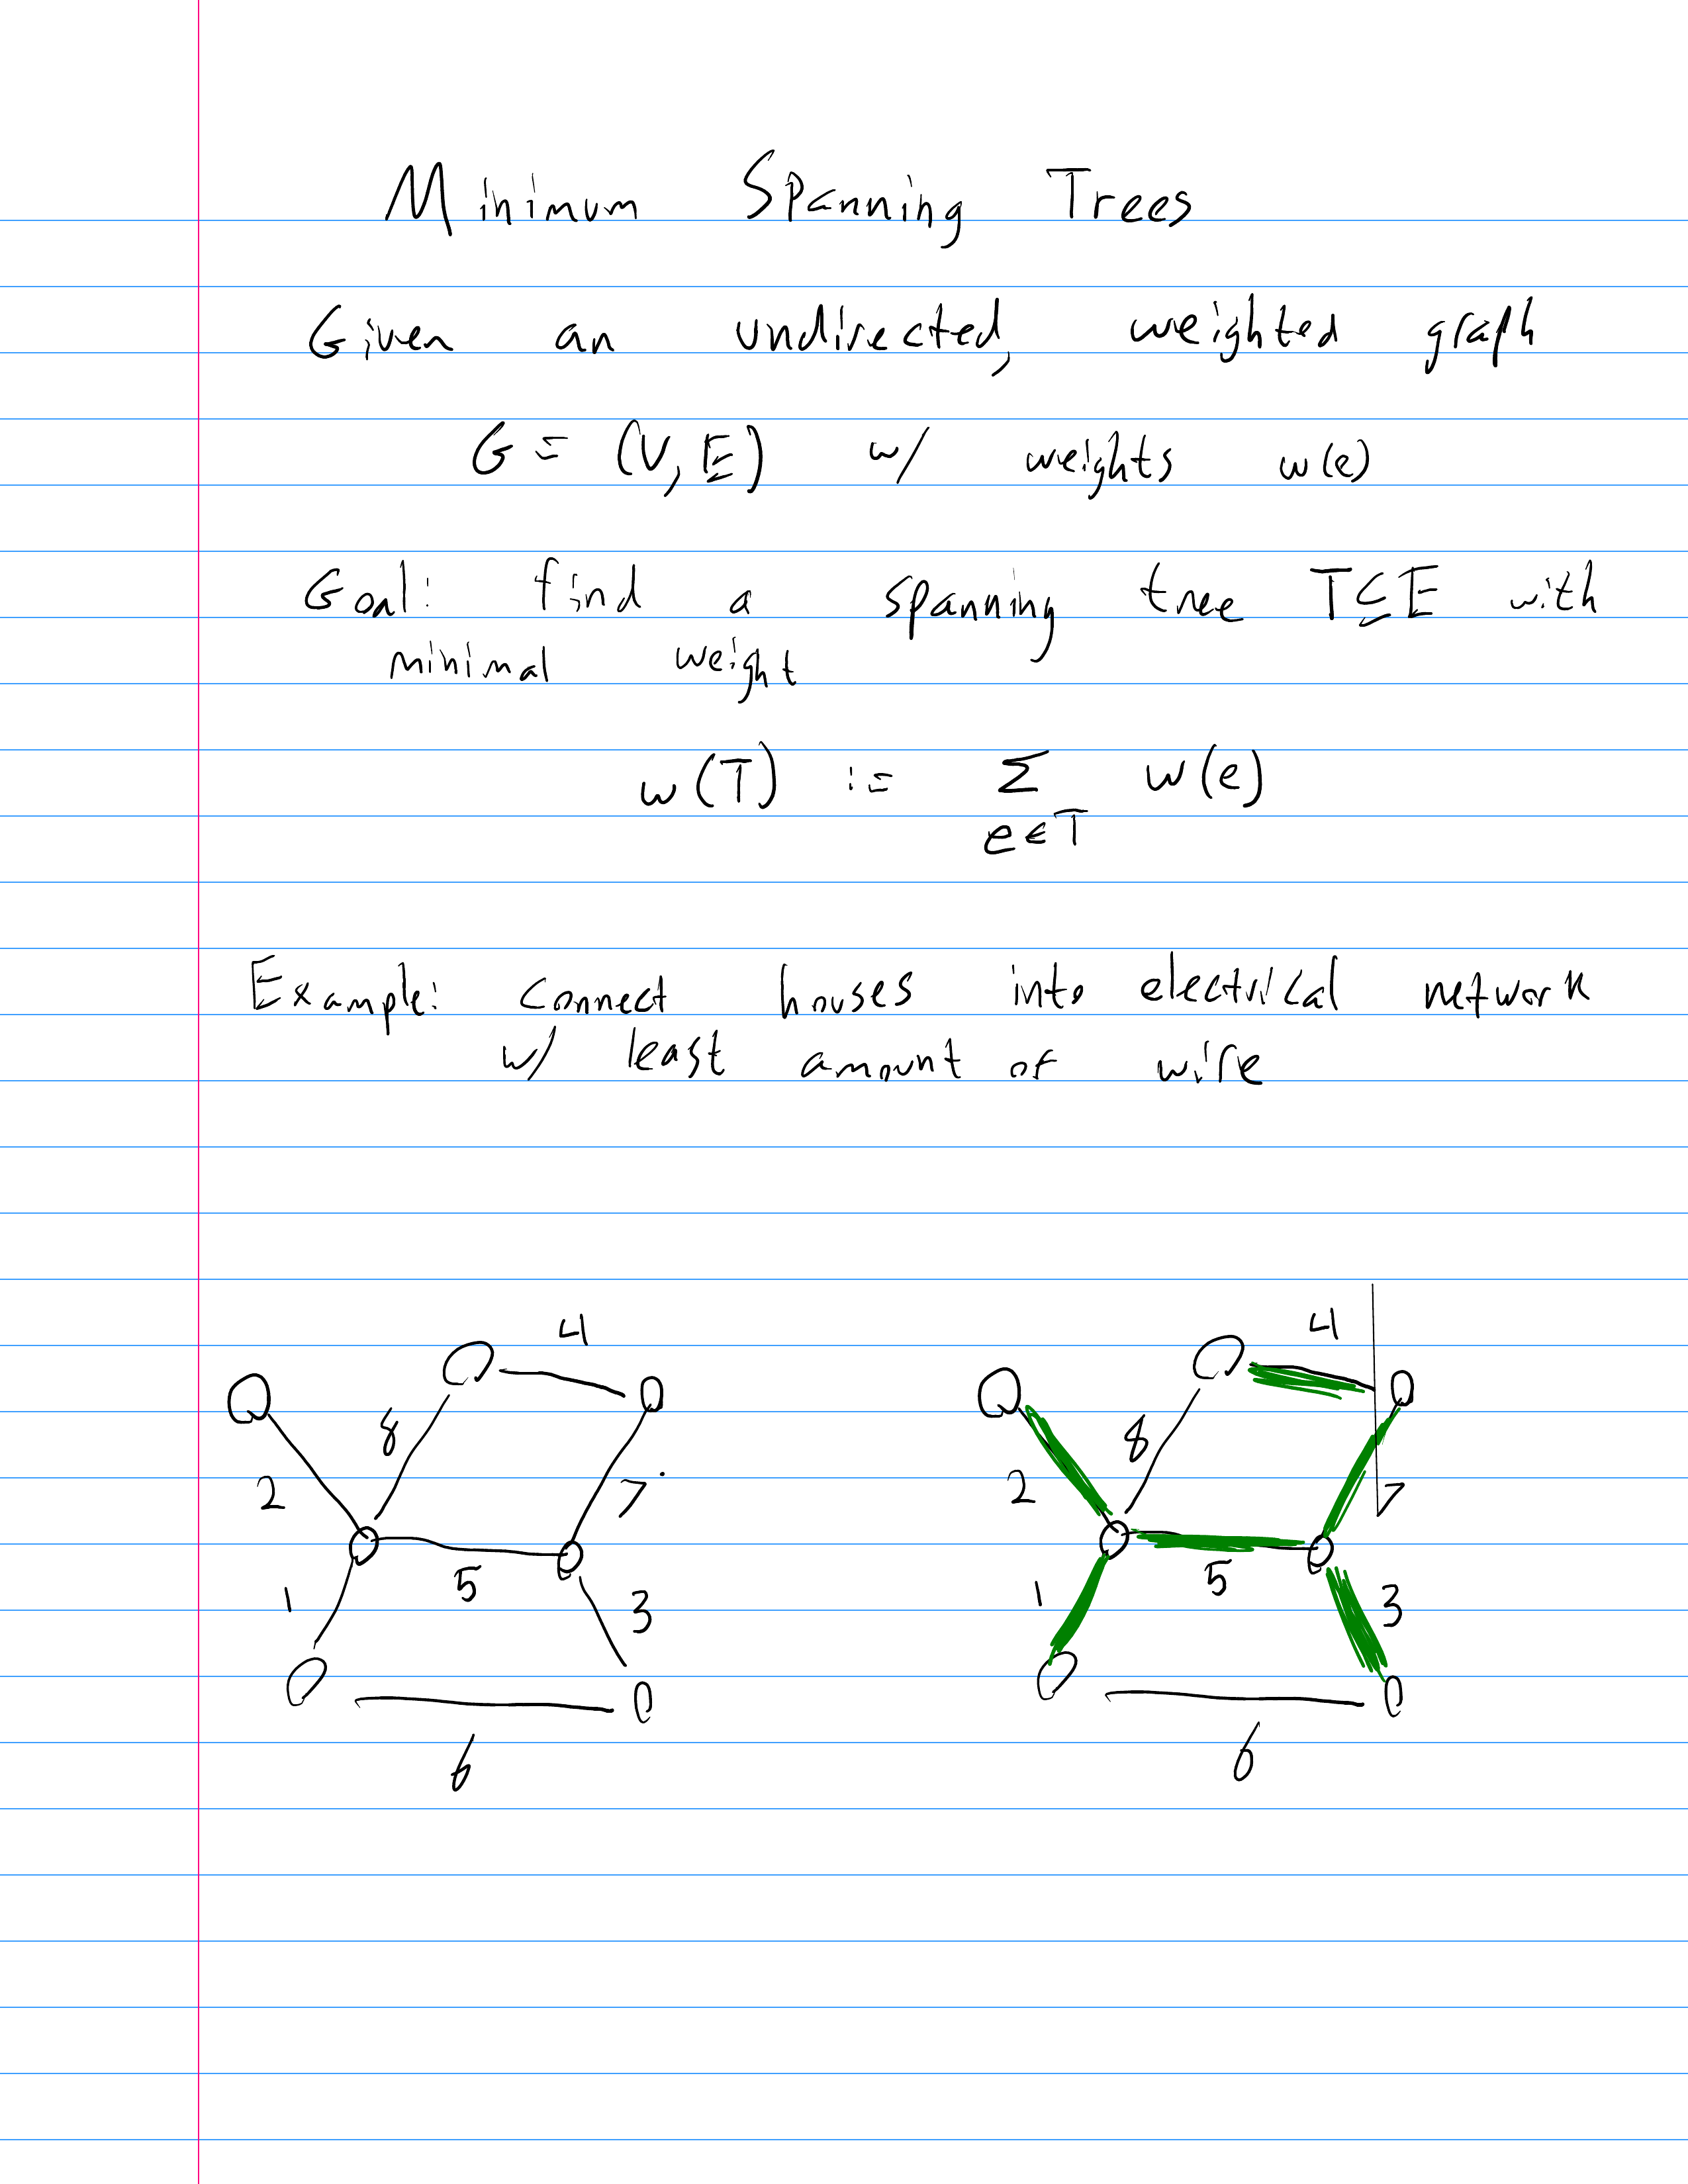 Minimum Spanning Trees
Given an undirected, weighted graph
G = (V, E) w/ weights w(e)
Goal: find a spanning tree T ⊆ E with
minimal weight
w(T) := Σ w(e)
e∈T
Example: connect houses into electrical network
w/ least amount of wire
4 4
8 8
2 7 2 7
1 5 3 1 5 3
6 6